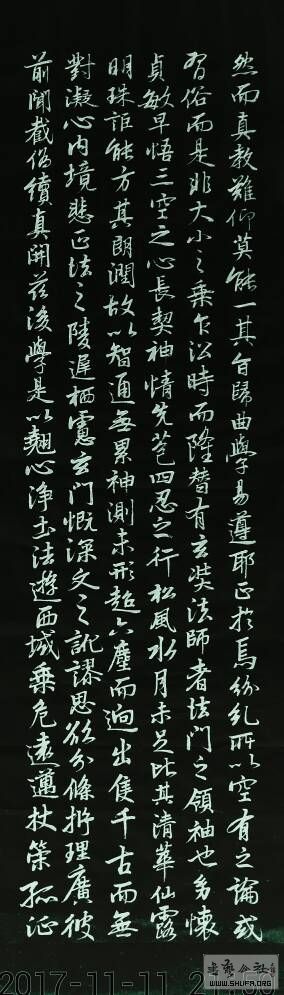 然而真教難仰莫能一其旨歸曲學易遵耶正於焉紛糺所以空有之論或
習俗而是非大小之乘乍沿時而隆替有玄奘法師者法門之領袖也幼懷
貞敏早悟三空之心長契神情先苞四忍之行松風水月未足比其清華仙露
明珠詎能方其朗潤故以智通無累神測未形超六塵而迥出隻千古而無
對凝心內境悲正法之陵遲栖慮玄門慨深文之訛謬思欲分條析理廣彼
前聞截偽續真開茲後學是以翹心淨土法遊西域乘危遠邁杖策孤征
2017-11-11
WWW.SHUFA.ORG